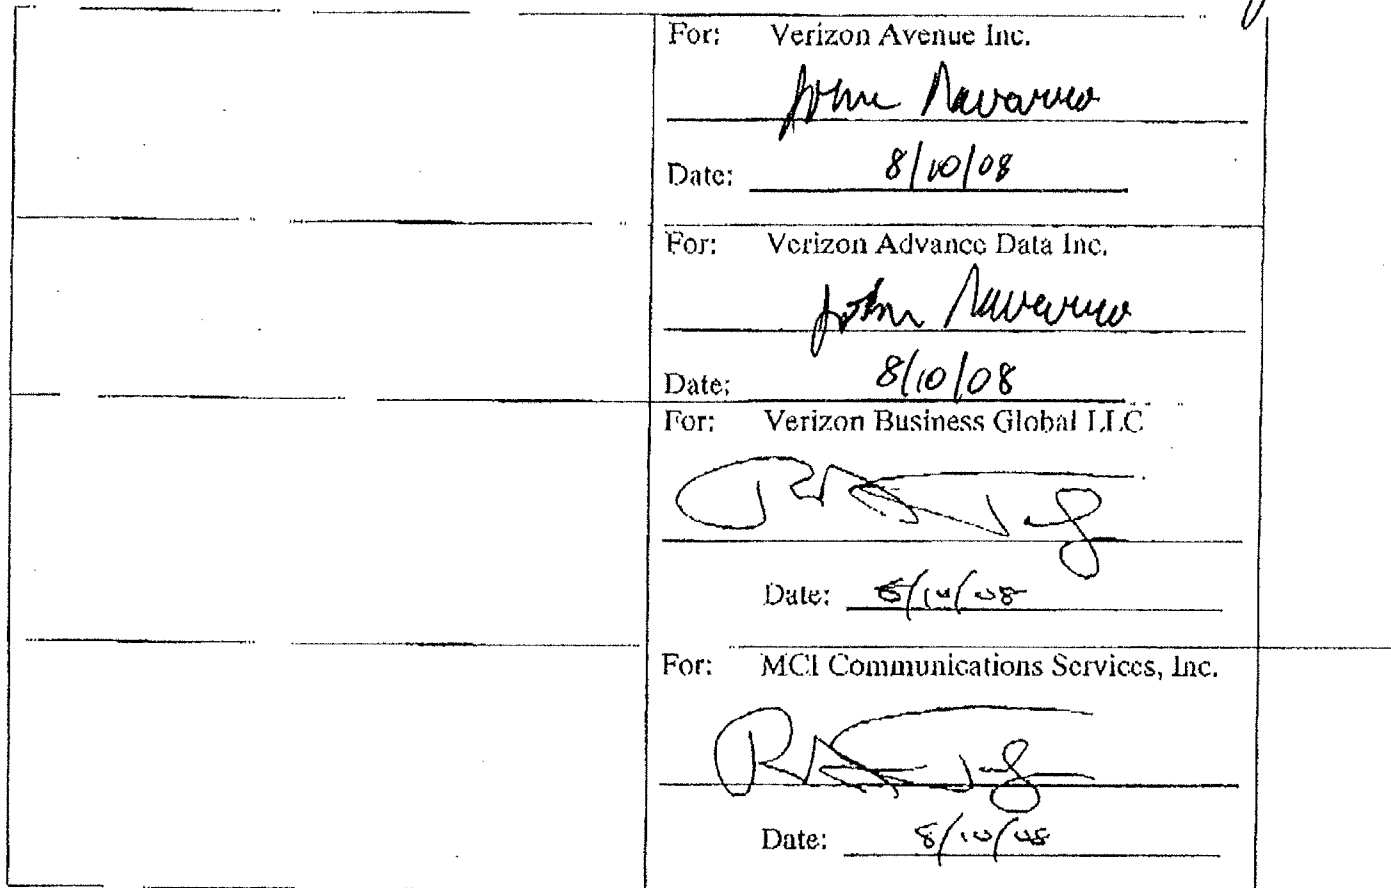 For: Verizon Avenue Inc.
John Navarro
Date: 8/10/08
For: Verizon Advance Data Inc.
John Navarro
Date: 8/10/08
For: Verizon Business Global LLC
Date: 8/10/08
For: MCI Communications Services, Inc.
Date: 8/10/08